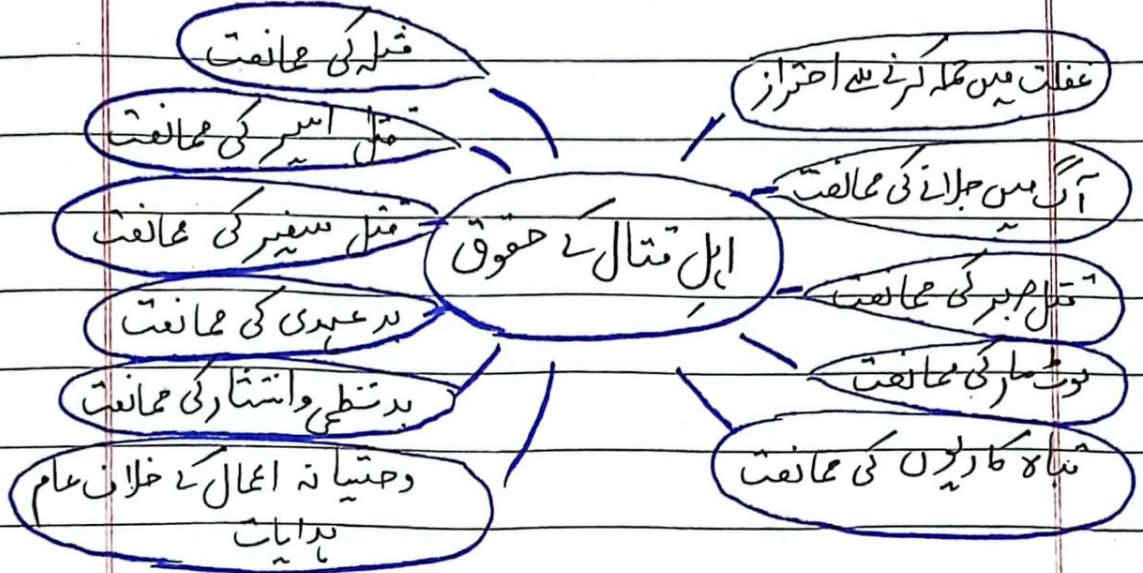 اہل قتال کے حقوق
غفلت میں حملہ کرنے سے احتراز
آگ میں جلانے کی ممانعت
قتل صبر کی ممانعت
لوٹ مار کی ممانعت
تباہ کاریوں کی ممانعت
مثلہ کی ممانعت
قتل اسیر کی ممانعت
قتل سفیر کی ممانعت
بد عہدی کی ممانعت
بدنظمی و انتشار کی ممانعت
وحشیانہ اعمال کے خلاف عام
ہدایات